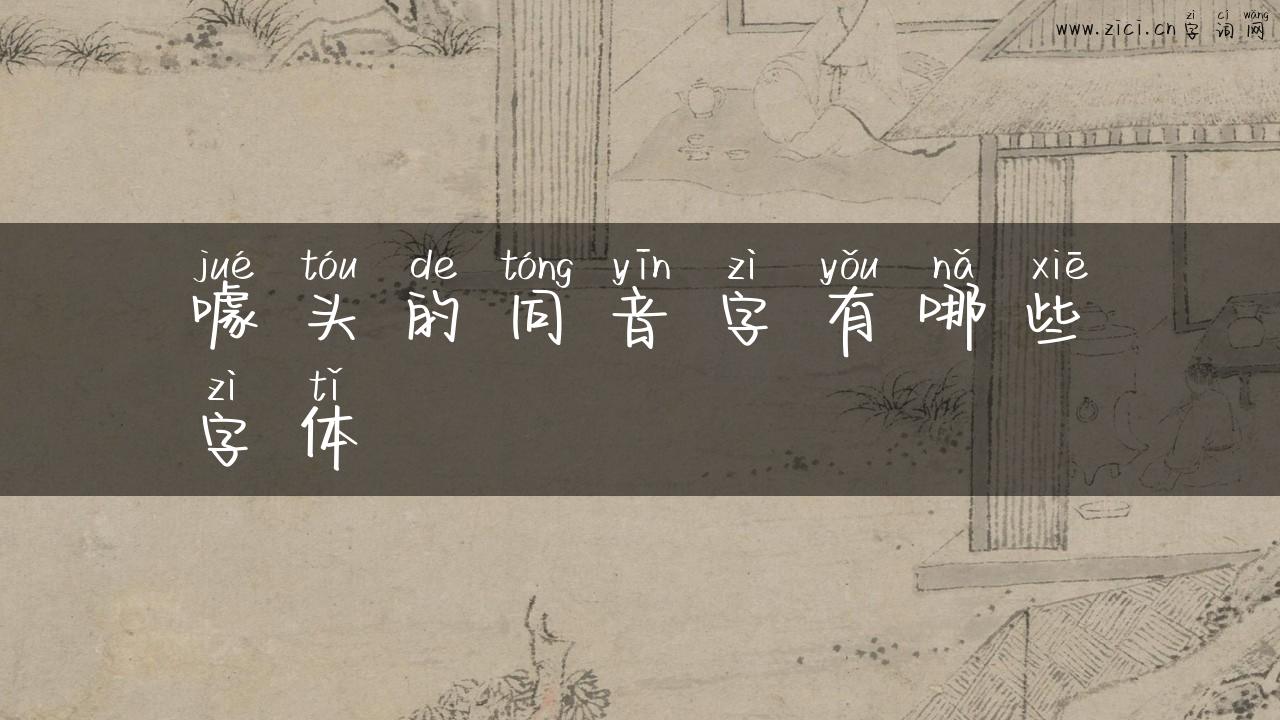 zì cí wǎng
www.zici.cn 字词网
jué tóu de tóng yīn zì yǒu nǎ xiē
噱头的同音字有哪些
zì tǐ
字体